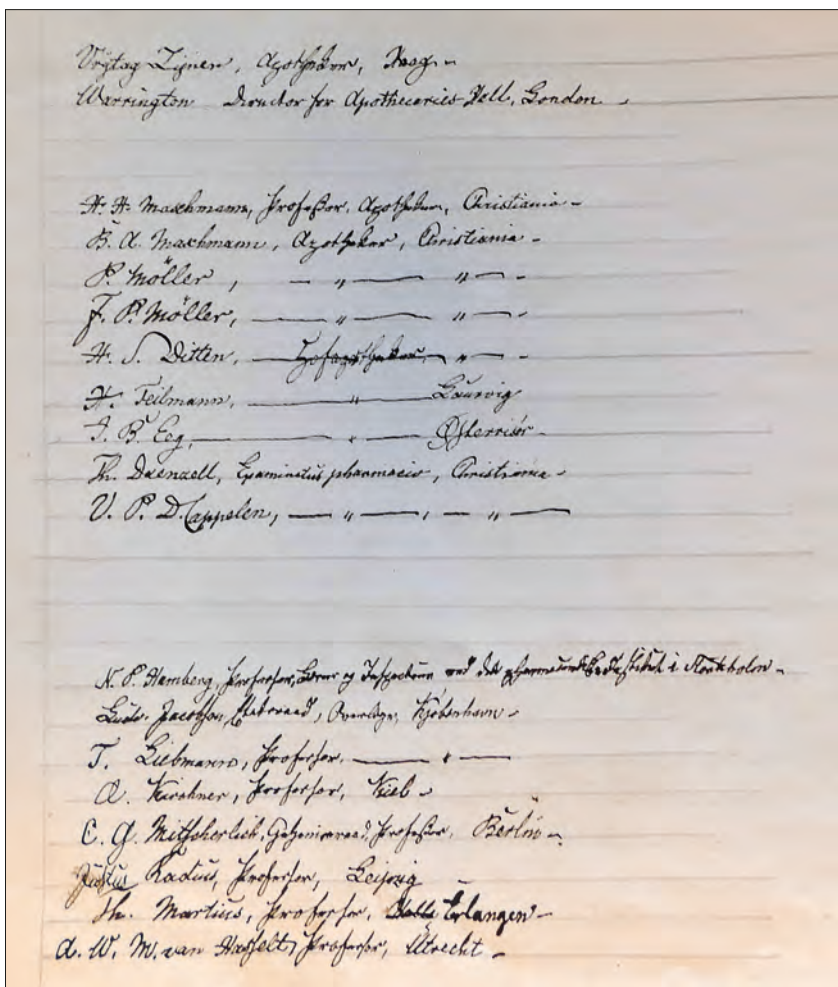 Vrijtag Zijnen, Apotheker, Haag -
Warrington Director for Apothecaries Hall, London -
H. H. Maschmann, Profeßor, Apotheker, Christiania -
B. A. Maschmann, Apotheker, Christiania -
P. Möller, — " — " — -
F. P. Möller, — " — " — -
H. S. Ditten, — Hofapotheker, " — -
H. Feilmann, — " — Laurvig
I. B. Eeg, — " — Østerrisör -
Th. Daenzell, Examinatus pharmaciæ, Christiania -
U. P. D. Cappelen, — " — , — " —
N. P. Hamberg, Professor, Lærer og Inspecteur ved det pharmaceutiske Institut i Stockholm -
Ludv. Jacobson, Etatsraad, Overlæge, Kjöbenhavn -
T. Liebmann, Professor, — " —
A. Kirchner, Professor, Kiel -
C. G. Mitscherlich, Geheimeraad, Profeßor, Berlin -
Justus Radius, Professor, Leipzig -
Th. Martius, Professor, Erlangen -
A. W. M. van Hasselt, Professor, Utrecht -